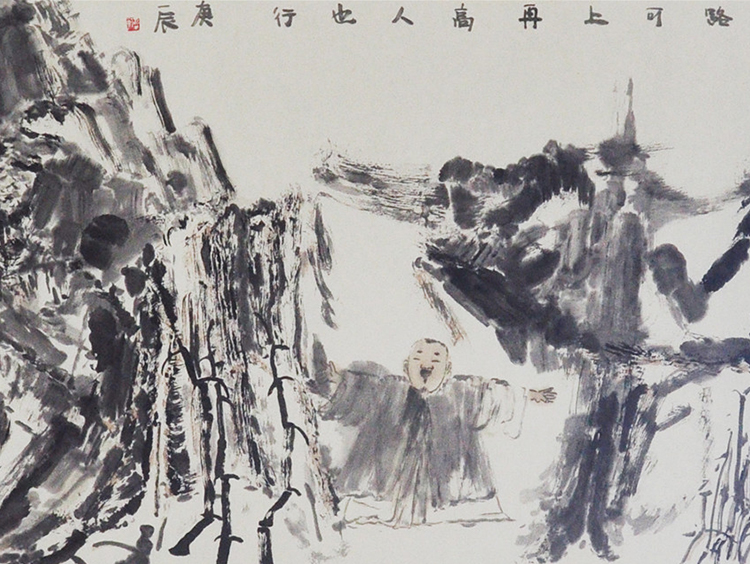 路可上再高人也行庚辰